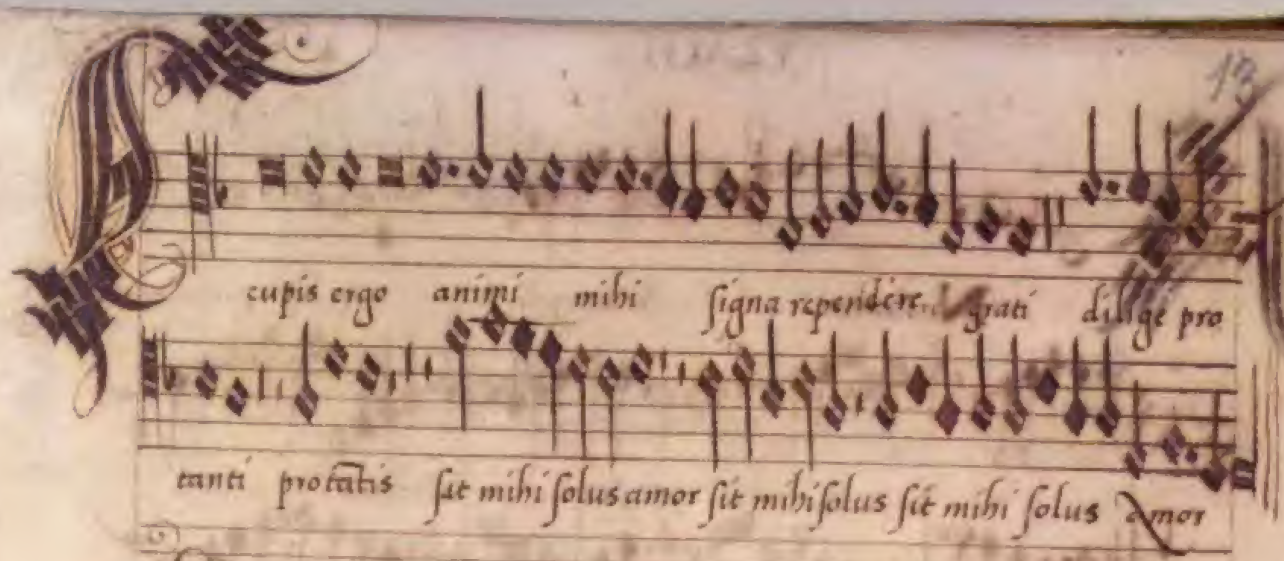 13
cupis ergo animi mihi signa rependere grati dilige pro
tanti protātis sit mihi solus amor sit mihi solus sit mihi solus amor